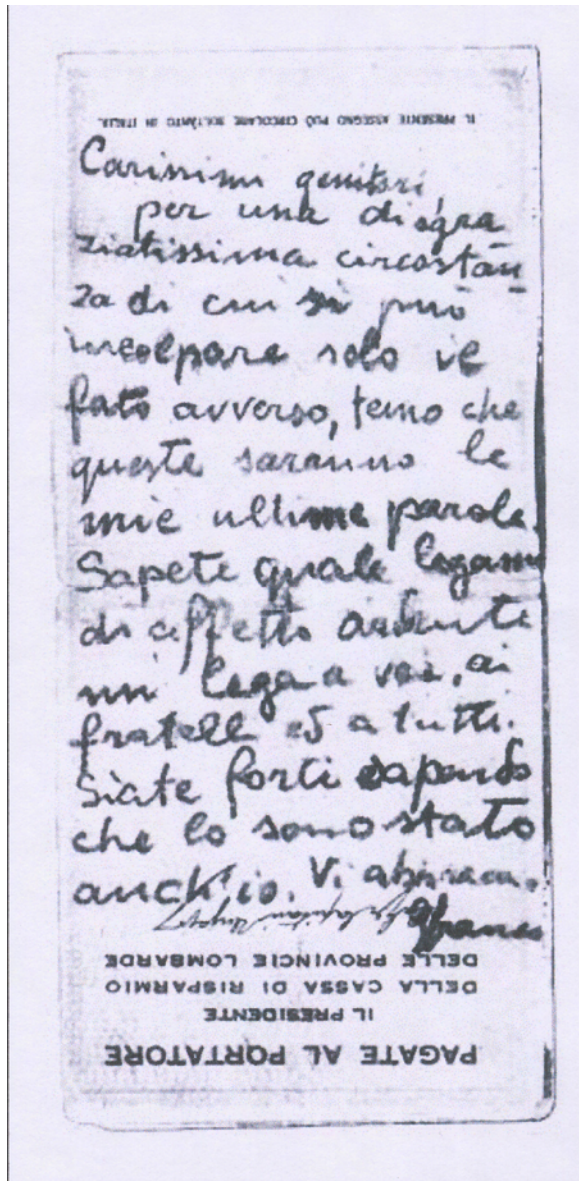 IL PRESENTE ASSEGNO PUÒ CIRCOLARE SOLTANTO IN ITALIA
Carissimi genitori,
per una disgra
ziatissima circostan
za di cui si può
incolpare solo il
fato avverso, temo che
queste saranno le
mie ultime parole.
Sapete quale legame
di affetto ardente
mi lega a voi, ai
fratelli ed a tutti.
Siate forti sapendo
che lo sono stato
anch'io. Vi abbraccio.
Franco
DELLE PROVINCIE LOMBARDE
DELLA CASSA DI RISPARMIO
IL PRESIDENTE
PAGATE AL PORTATORE